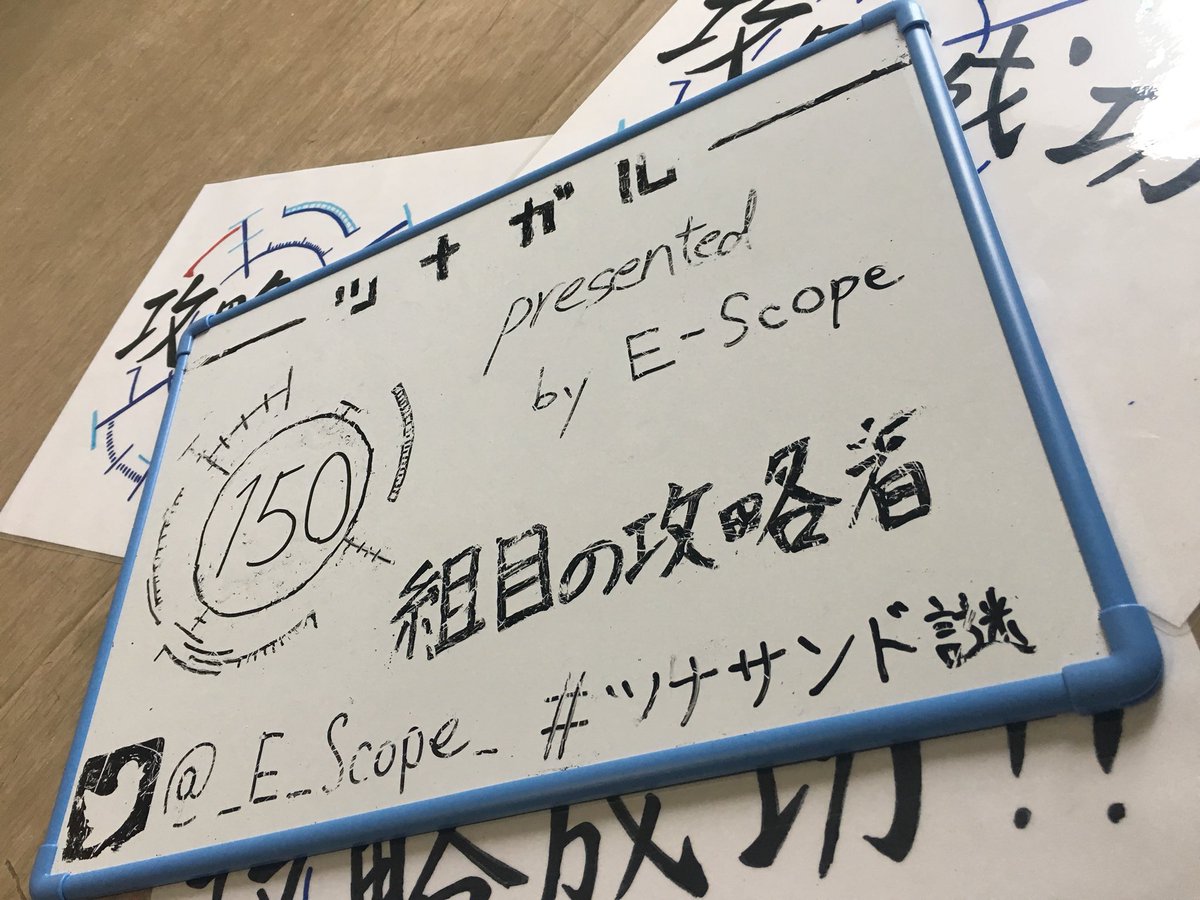 ツナガル
presented
by E-Scope
150
組目の攻略者
@_E_Scope_ #ツナサンド謎
攻略
成功
攻略成功!!